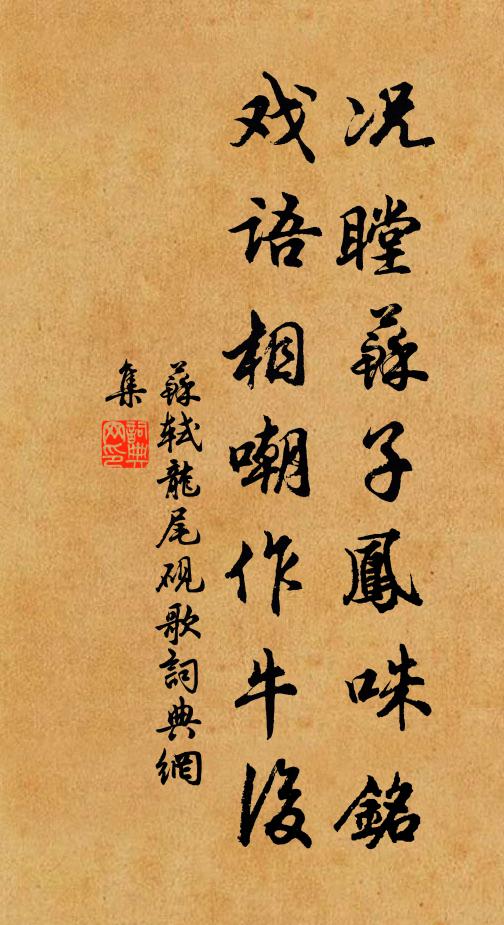 况瞠蘇子鳳咮銘
戏語相嘲作牛後
蘇軾龍尾硯歌詞典網
集
詞典網印